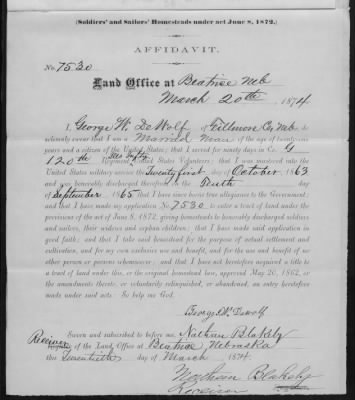 (Soldiers' and Sailors' Homesteads under act June 8, 1872.)
AFFIDAVIT.
No. 7530
Land Office at Beatrice Neb
March 20th, 1874
I, George W. DeWolf, of Fillmore Co, Neb, do
solemnly swear that I am a Married Man of the age of twenty-one
years and a citizen of the United States; that I served for ninety days in Co. G
120th Regiment, United States Volunteers; that I was mustered into the
United States military service the Twenty first day of October, 1863
and was honorably discharged therefrom on the day
of September 1865; that I have since borne true allegiance to the Government;
and that I have made my application No. 7530 to enter a tract of land under the
provisions of the act of June 8, 1872, giving homesteads to honorably discharged soldiers
and sailors, their widows and orphan children; that I have made said application in
good faith; and that I take said homestead for the purpose of actual settlement and
cultivation, and for my own exclusive use and benefit, and for the use and benefit of no
other person or persons whomsoever; and that I have not heretofore acquired a title to
a tract of land under this, or the original homestead law, approved May 20, 1862, or
the amendments thereto, or voluntarily relinquished, or abandoned, an entry heretofore
made under said acts: So help me God.
George W. Dewolf
Sworn and subscribed to before me, Nathan Blakely
Receiver
Register of the Land Office at Beatrice, Nebraska
this Twentieth day of March, 1874
Nathan Blakely
Receiver